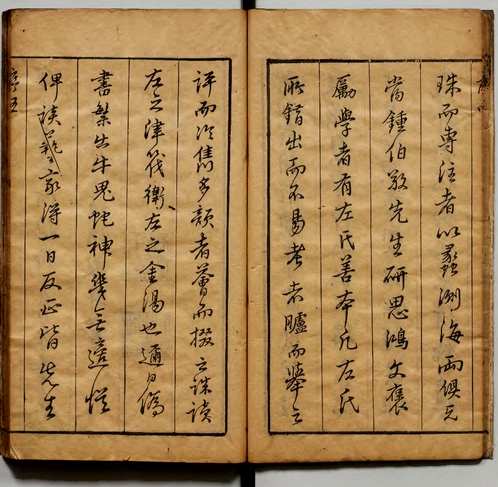 珠而專注者以蠡測海兩俱無
當鍾伯敬先生研思鴻文褒
勵學者有左氏善本凡左氏
所錯出而不易考者臚而舉之
評而次雋多顏者薈而掇之誅讀
左之津筏衛左之金湯也邇日偽
書繁出牛鬼蛇神幾無適從
俾讀家得一日反正皆先生
序五